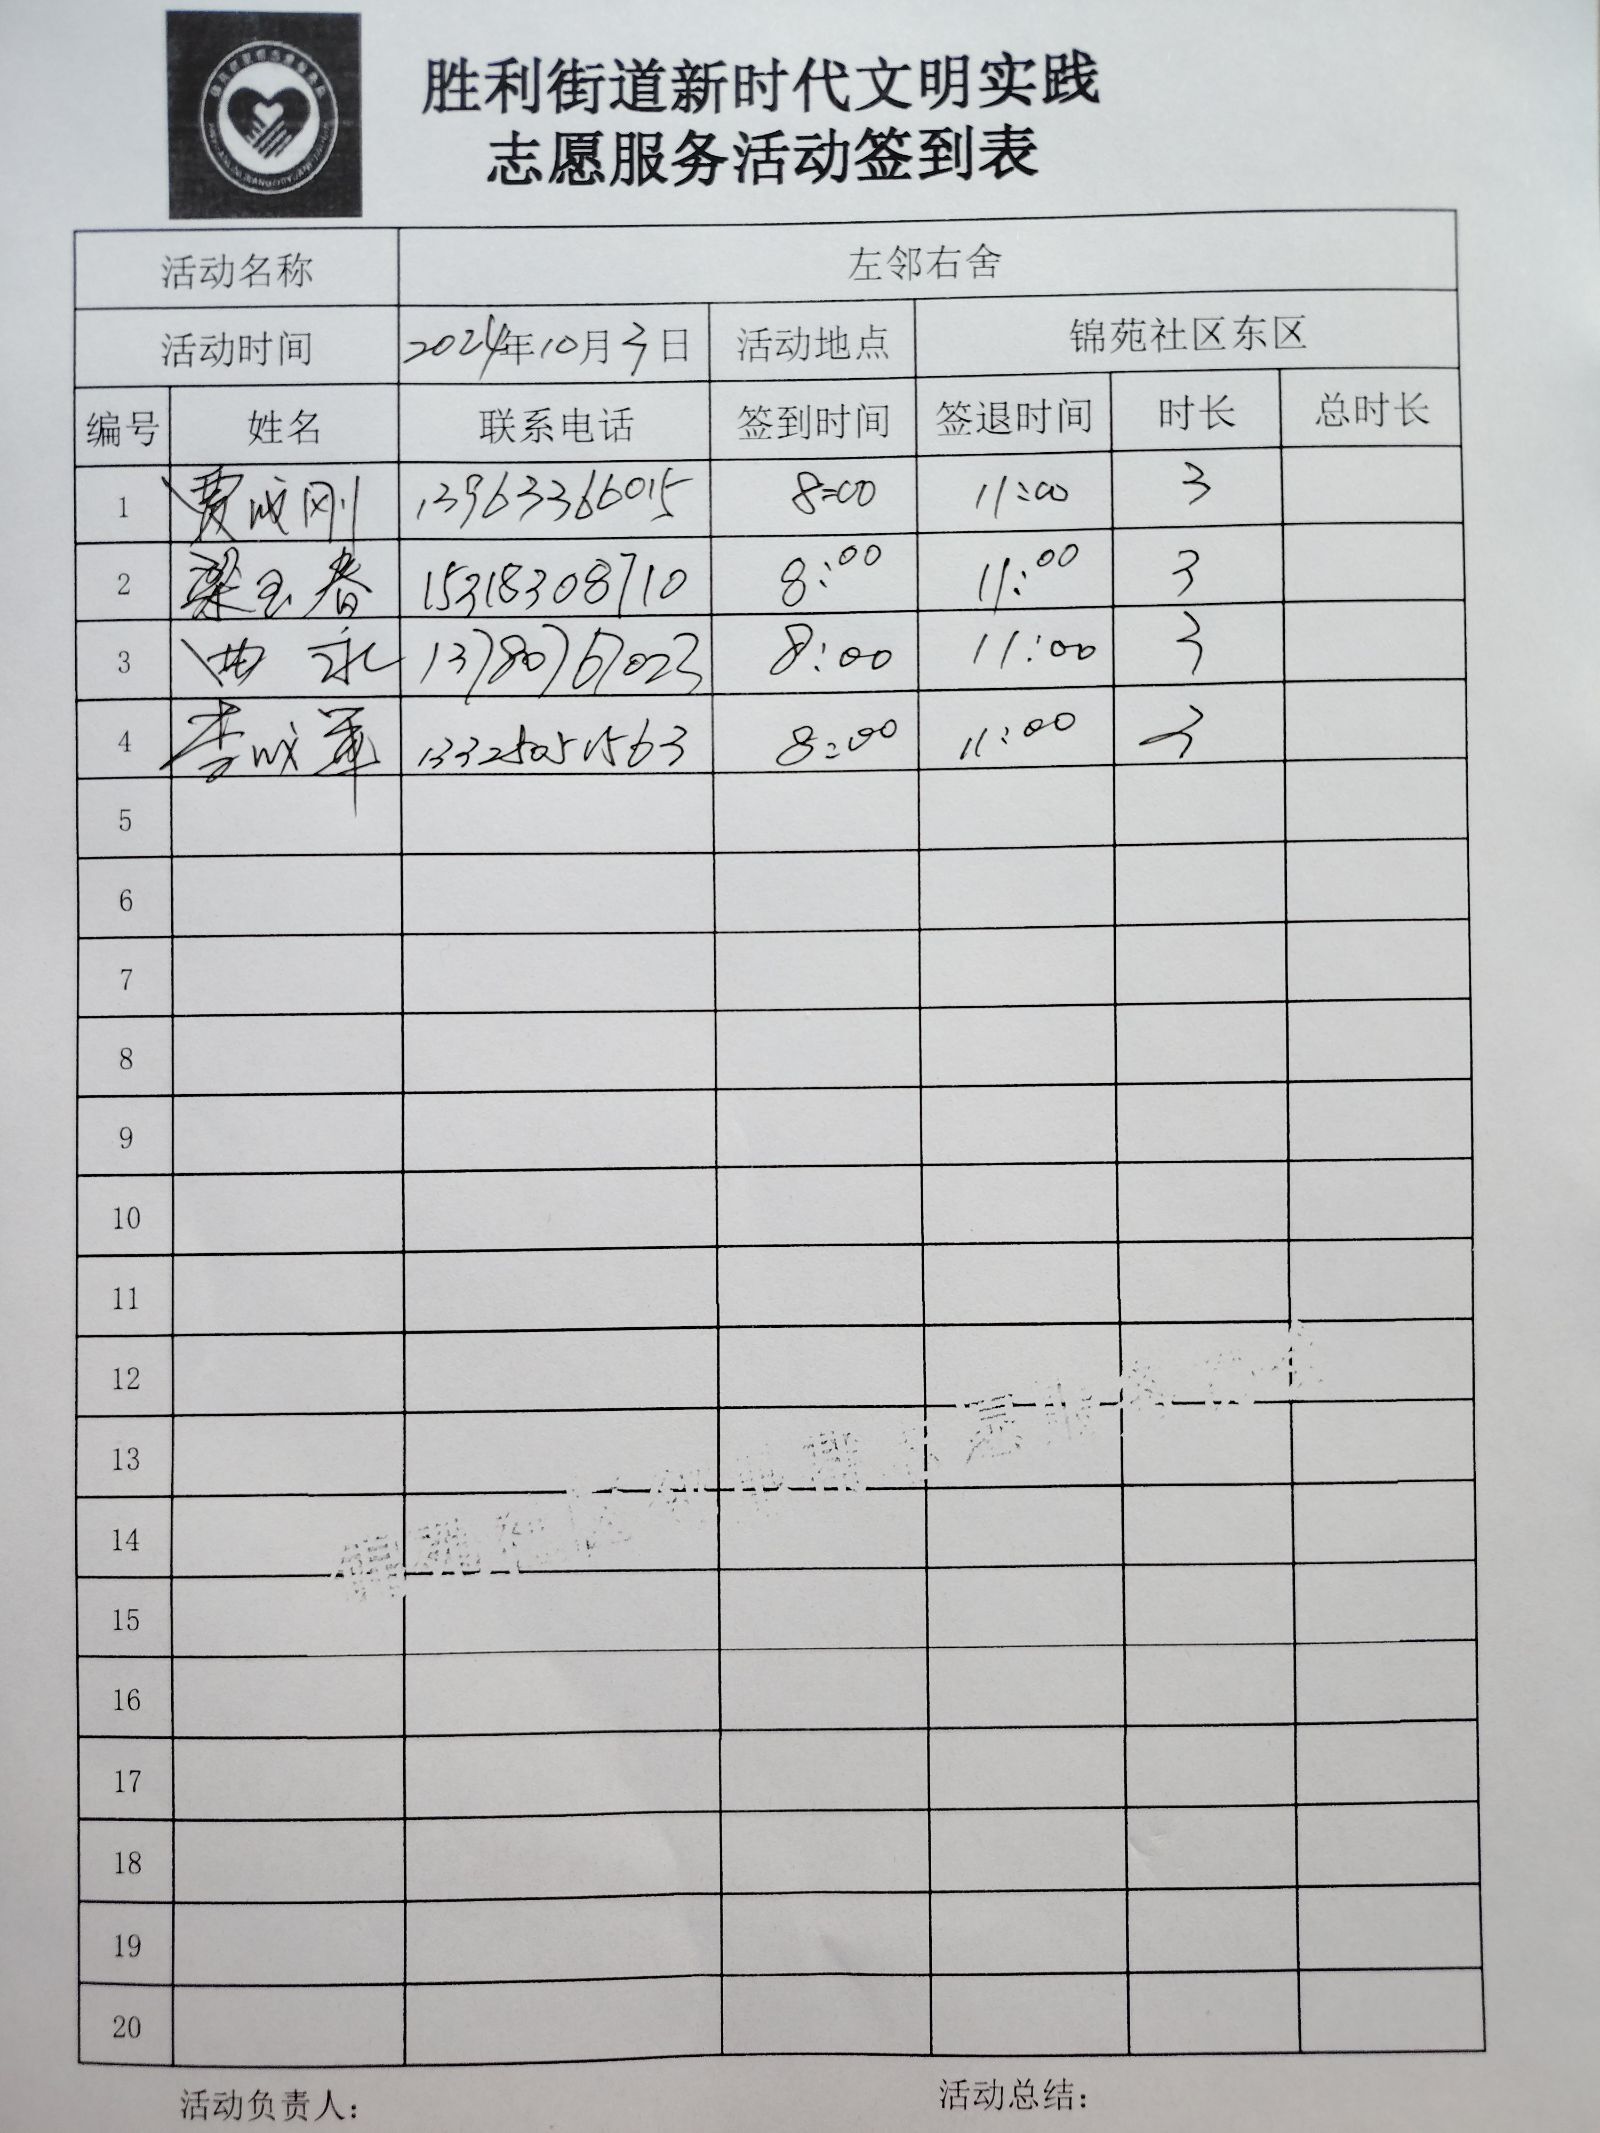 胜利街道新时代文明实践
志愿服务活动签到表
活动名称 左邻右舍
活动时间 2024年10月3日 活动地点 锦苑社区东区
编号 姓名 联系电话 签到时间 签退时间 时长 总时长
1 贾成刚 13963366015 8:00 11:00 3
2 梁玉春 15318308710 8:00 11:00 3
3 曲永 13780767023 8:00 11:00 3
4 李成军 13325051563 8:00 11:00 3
5
6
7
8
9
10
11
12
13
14
15
16
17
18
19
20
活动负责人: 活动总结: